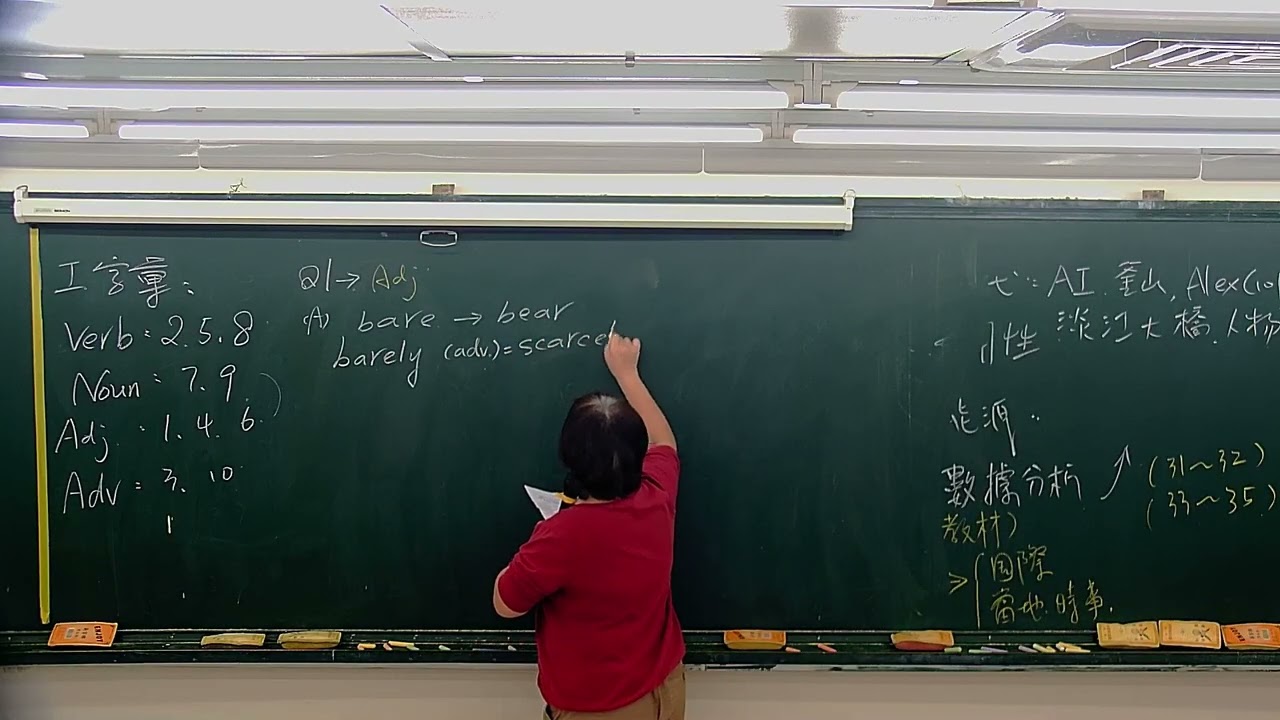 工字彙:
Verb: 2.5.8
Noun: 7.9
Adj: 1.4.6
Adv: 3.10
1
Q1→Adj
(A) bare → bear
barely (adv.)=scarce
AI. 釜山, Alex(101
性 淡江大橋.人物
能源:
數據分析 (31~32)
(33~35)
教材)
国際
當地時事.